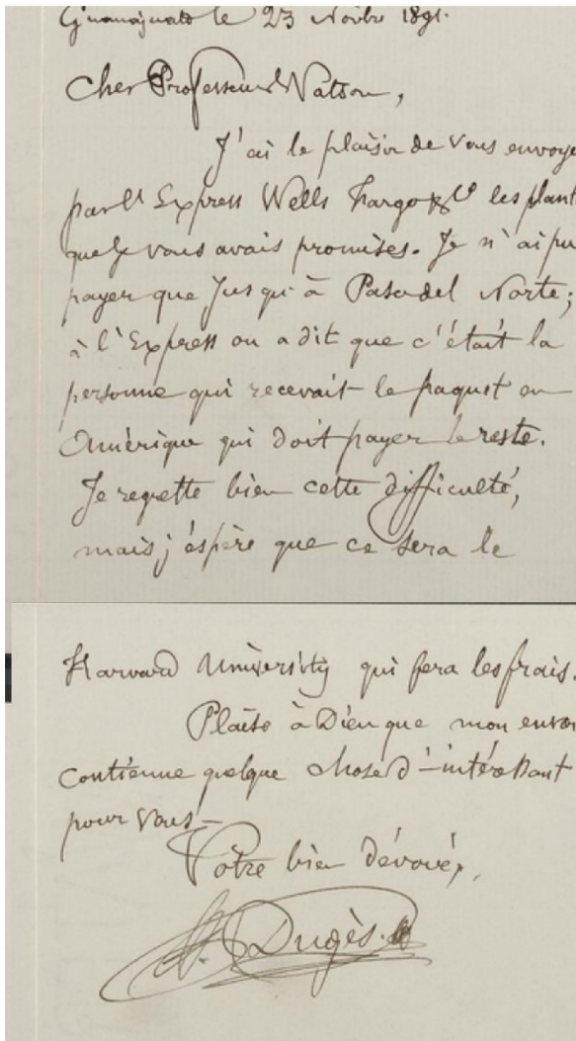 Guanajuato le 23 Novbre 1891.
Cher Professeur Watson,
J'ai le plaisir de vous envoye
par l' Express Wells Fargo & Co les plant
que je vous avais promises. Je n'ai pu
payer que jusqu'à Paso del Norte;
à l'Express on a dit que c'était la
personne qui recevait le paquet en
Amérique qui doit payer le reste.
Je regrette bien cette difficulté,
mais j'espère que ce sera le
Harvard University qui fera les frais.
Plaise à Dieu que mon envoi
contienne quelque chose d'intéressant
pour vous.
Votre bien dévoué,
A. Dugès.